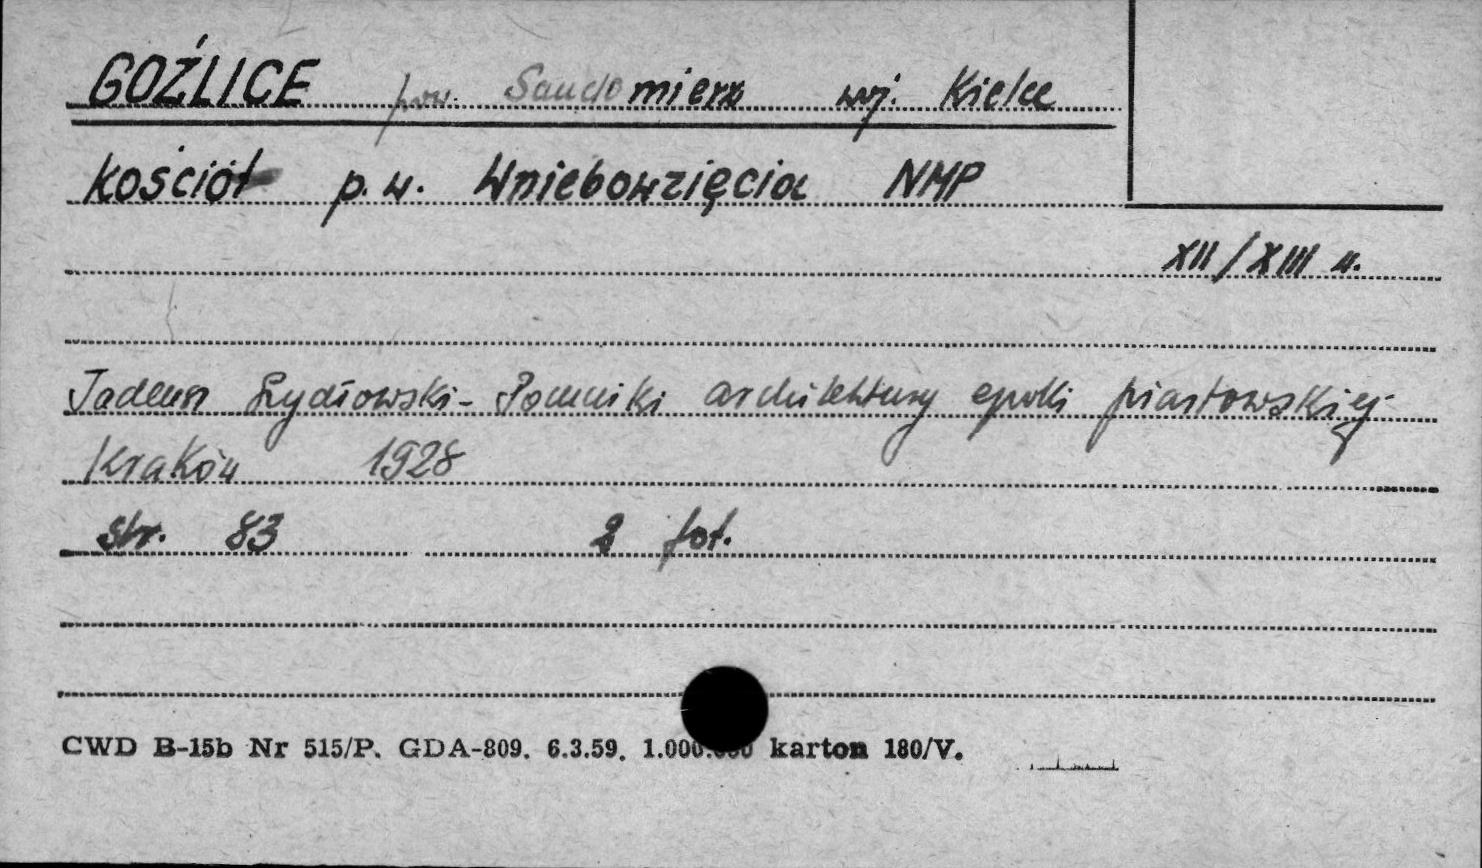 GOŹLICE pow. Sandomierz woj. Kielce
kościół p.w. Wniebowzięcia NMP
XII/XIII w.
Tadeusz Szydłowski - Pomniki architektury epoki piastowskiej
Kraków 1928
str. 83 2 fot.
CWD B-15b Nr 515/P. GDA-809. 6.3.59. 1.000.000 karton 180/V.